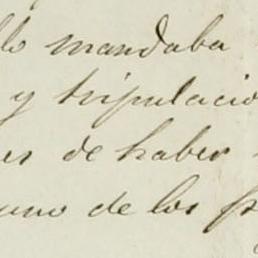 llo mandaba
y tripulacio
es de haber
uno de los p